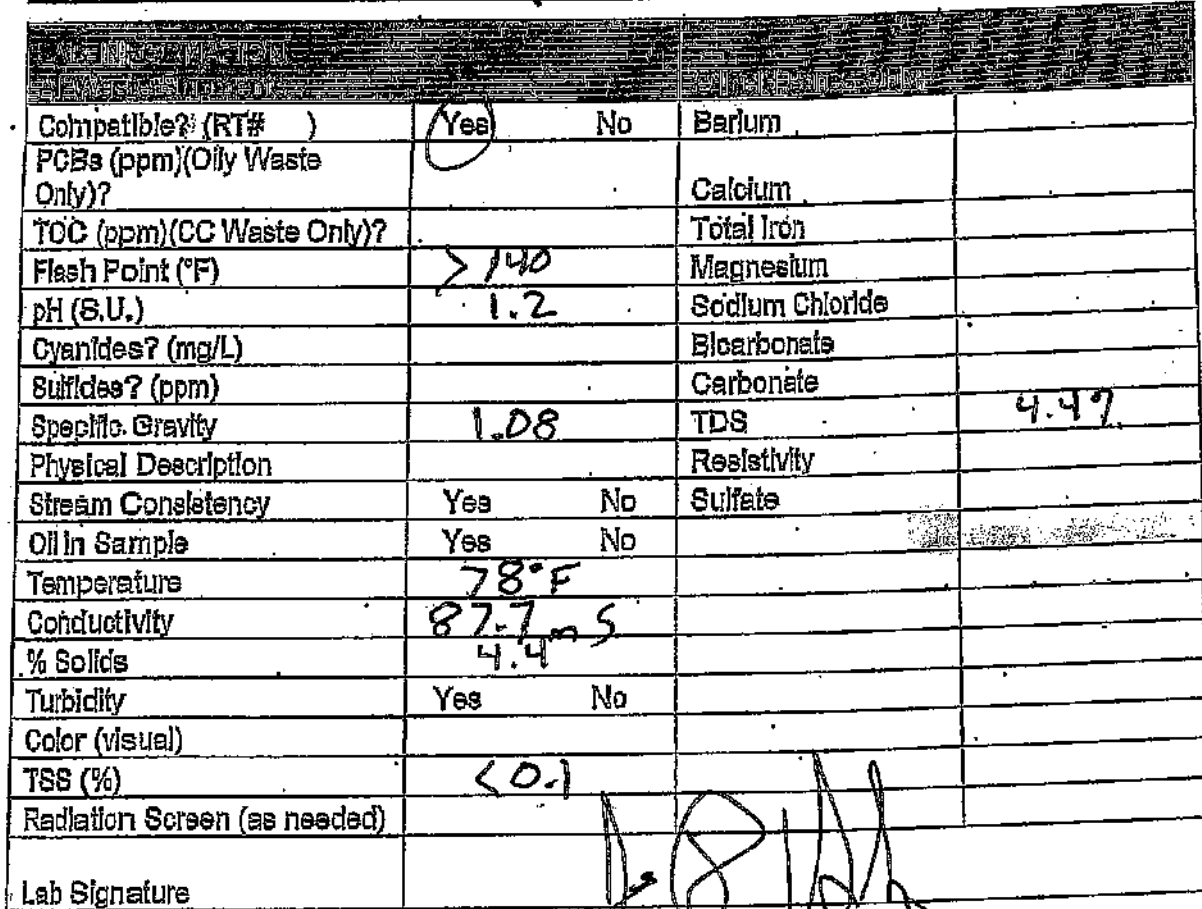 LAB INFORMATION
Compatible? (RT# ) Yes No Barium
PCBs (ppm)(Oily Waste
Only)? Calcium
TOC (ppm)(CC Waste Only)? Total Iron
Flash Point (°F) >140 Magnesium
pH (S.U.) 1.2 Sodium Chloride
Cyanides? (mg/L) Bicarbonate
Sulfides? (ppm) Carbonate
Specific Gravity 1.08 TDS 4.47
Physical Description Resistivity
Stream Consistency Yes No Sulfate
Oil in Sample Yes No
Temperature 78°F
Conductivity 87.7 mS
% Solids 4.4
Turbidity Yes No
Color (visual)
TSS (%) <0.1
Radiation Screen (as needed)
Lab Signature